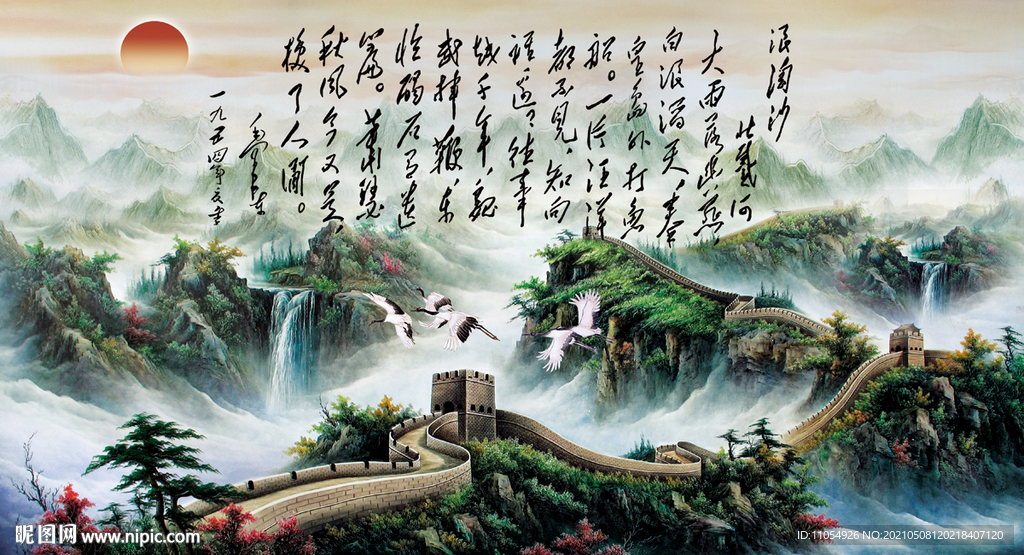 浪淘沙
北戴河
大雨落幽燕，
白浪滔天，秦
皇岛外打鱼
船。一片汪洋
都不见，知向
谁边？往事
越千年，魏
武挥鞭，东
临碣石有遗
篇。萧瑟
秋风今又是，
换了人间。
毛泽东
一九五四年夏书
昵图网 www.nipic.com
ID:11054926 NO:20210508120218407120